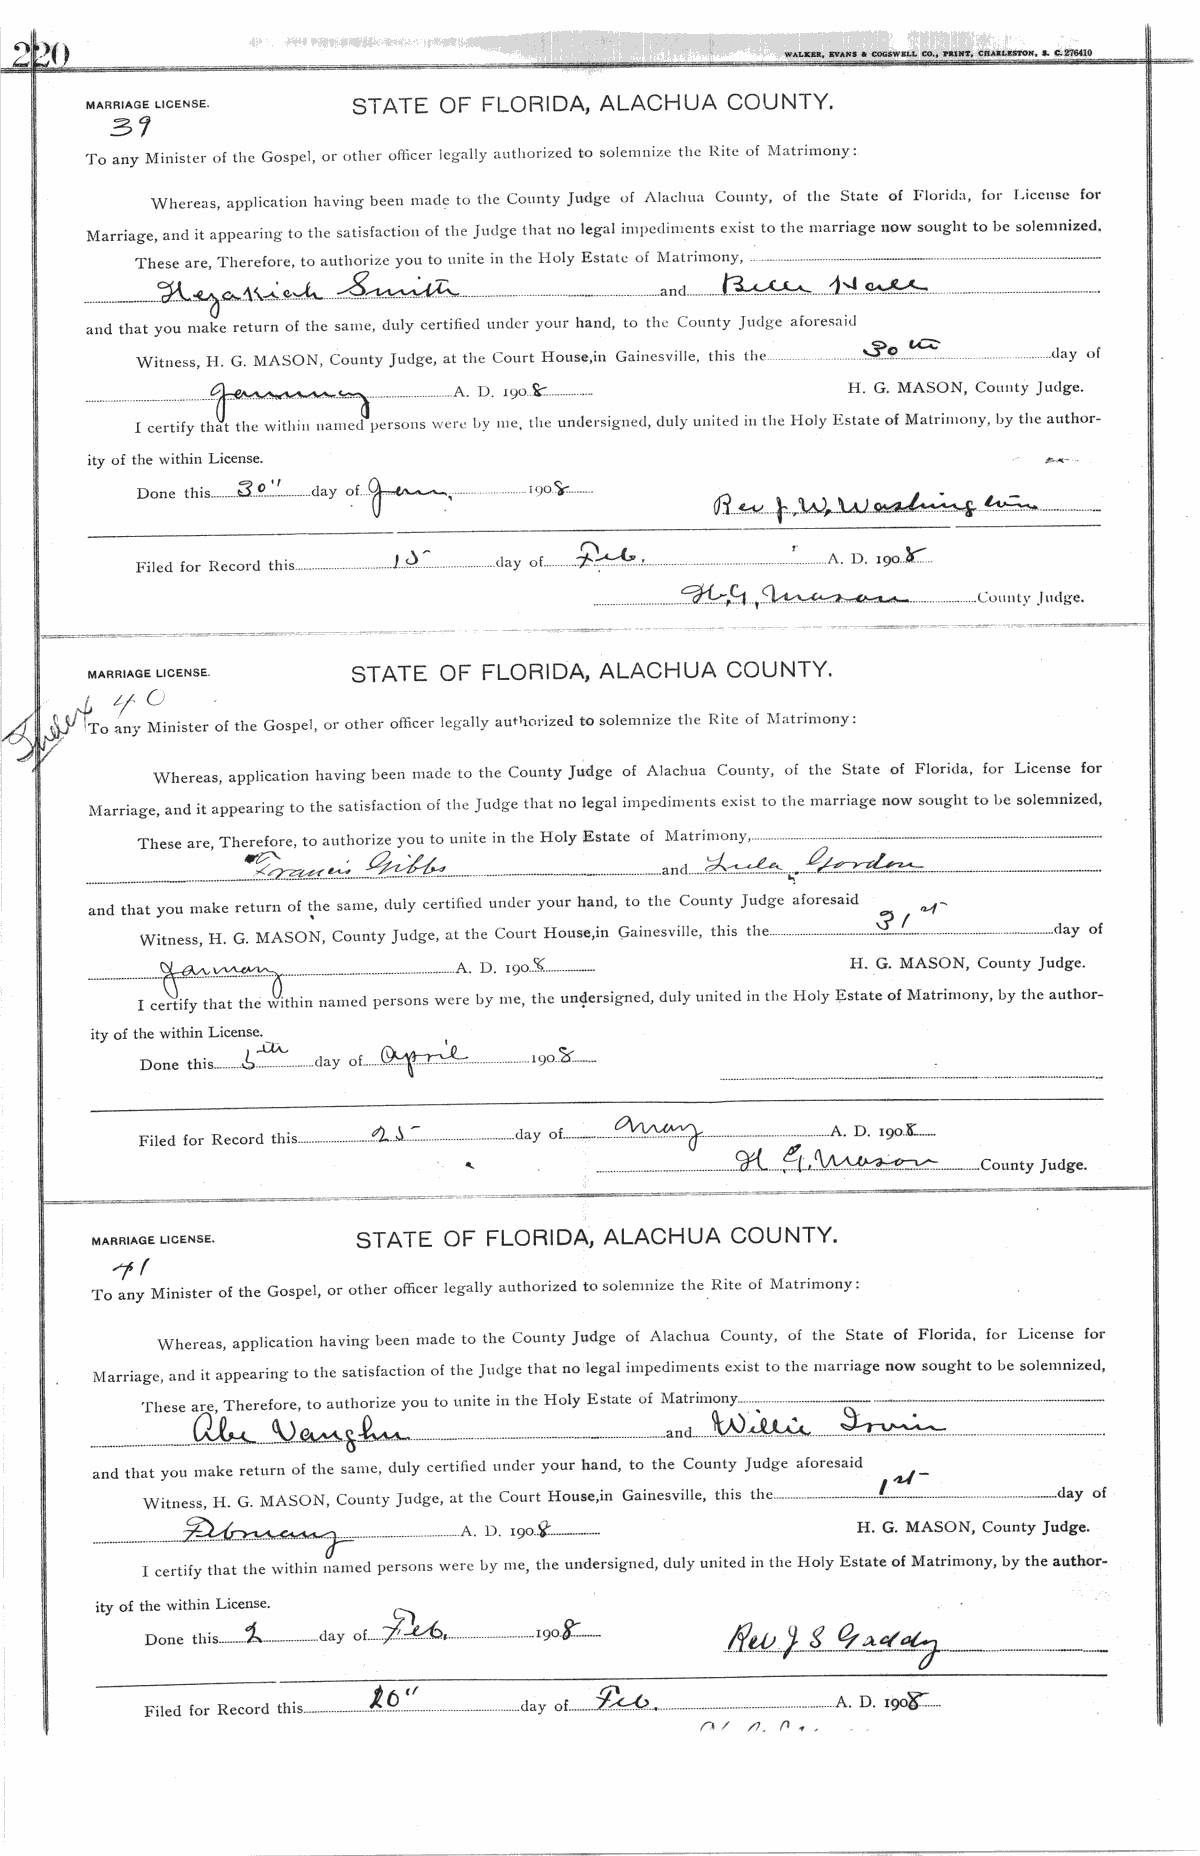 220
WALKER, EVANS & COGSWELL CO., PRINT, CHARLESTON, S. C. 276410
MARRIAGE LICENSE. STATE OF FLORIDA, ALACHUA COUNTY.
39
To any Minister of the Gospel, or other officer legally authorized to solemnize the Rite of Matrimony:
Whereas, application having been made to the County Judge of Alachua County, of the State of Florida, for License for
Marriage, and it appearing to the satisfaction of the Judge that no legal impediments exist to the marriage now sought to be solemnized,
These are, Therefore, to authorize you to unite in the Holy Estate of Matrimony,
Hezakiah Smith and Hall
and that you make return of the same, duly certified under your hand, to the County Judge aforesaid
Witness, H. G. MASON, County Judge, at the Court House,in Gainesville, this the 30th day of
January A. D. 1908 H. G. MASON, County Judge.
I certify that the within named persons were by me, the undersigned, duly united in the Holy Estate of Matrimony, by the author-
ity of the within License.
Done this 30" day of Jan, 1908
Rev J. W. Washington
Filed for Record this 15 day of Feb. A. D. 1908
H. G. Mason County Judge.
MARRIAGE LICENSE. STATE OF FLORIDA, ALACHUA COUNTY.
Index 40
To any Minister of the Gospel, or other officer legally authorized to solemnize the Rite of Matrimony:
Whereas, application having been made to the County Judge of Alachua County, of the State of Florida, for License for
Marriage, and it appearing to the satisfaction of the Judge that no legal impediments exist to the marriage now sought to be solemnized,
These are, Therefore, to authorize you to unite in the Holy Estate of Matrimony,
Francis Gibbs and Lula Gordon
and that you make return of the same, duly certified under your hand, to the County Judge aforesaid
Witness, H. G. MASON, County Judge, at the Court House,in Gainesville, this the 31st day of
January A. D. 1908 H. G. MASON, County Judge.
I certify that the within named persons were by me, the undersigned, duly united in the Holy Estate of Matrimony, by the author-
ity of the within License.
Done this 5th day of April 1908
Filed for Record this 25 day of May A. D. 1908
H G. Mason County Judge.
MARRIAGE LICENSE. STATE OF FLORIDA, ALACHUA COUNTY.
41
To any Minister of the Gospel, or other officer legally authorized to solemnize the Rite of Matrimony:
Whereas, application having been made to the County Judge of Alachua County, of the State of Florida, for License for
Marriage, and it appearing to the satisfaction of the Judge that no legal impediments exist to the marriage now sought to be solemnized,
These are, Therefore, to authorize you to unite in the Holy Estate of Matrimony
Abe Vaughn and Willie Irvin
and that you make return of the same, duly certified under your hand, to the County Judge aforesaid
Witness, H. G. MASON, County Judge, at the Court House,in Gainesville, this the 1st day of
February A. D. 1908 H. G. MASON, County Judge.
I certify that the within named persons were by me, the undersigned, duly united in the Holy Estate of Matrimony, by the author-
ity of the within License.
Done this 2 day of Feb. 1908
Rev J S Gaddy
Filed for Record this 20" day of Feb. A. D. 1908